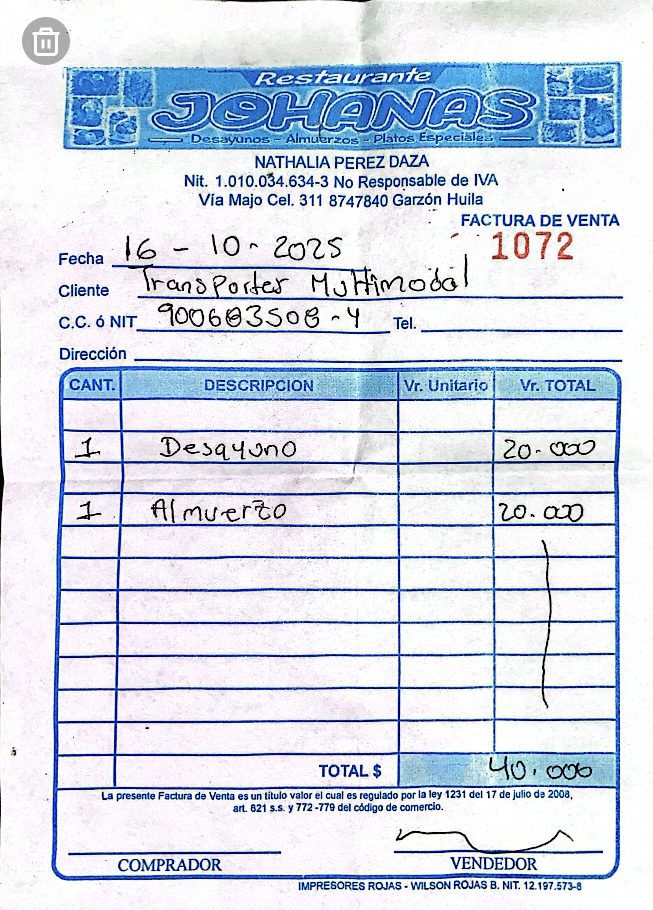 Restaurante
JOHANAS
Desayunos - Almuerzos - Platos Especiales
NATHALIA PEREZ DAZA
Nit. 1.010.034.634-3 No Responsable de IVA
Vía Majo Cel. 311 8747840 Garzón Huila
FACTURA DE VENTA
1072
Fecha 16 - 10 - 2025
Cliente Transportes Multimodal
C.C. ó NIT 900683508-4 Tel.
Dirección
CANT. DESCRIPCION Vr. Unitario Vr. TOTAL
1 Desayuno 20.000
1 Almuerzo 20.000
TOTAL $ 40.000
La presente Factura de Venta es un título valor el cual es regulado por la ley 1231 del 17 de julio de 2008,
art. 621 s.s. y 772 -779 del código de comercio.
COMPRADOR VENDEDOR
IMPRESORES ROJAS - WILSON ROJAS B. NIT. 12.197.573-8